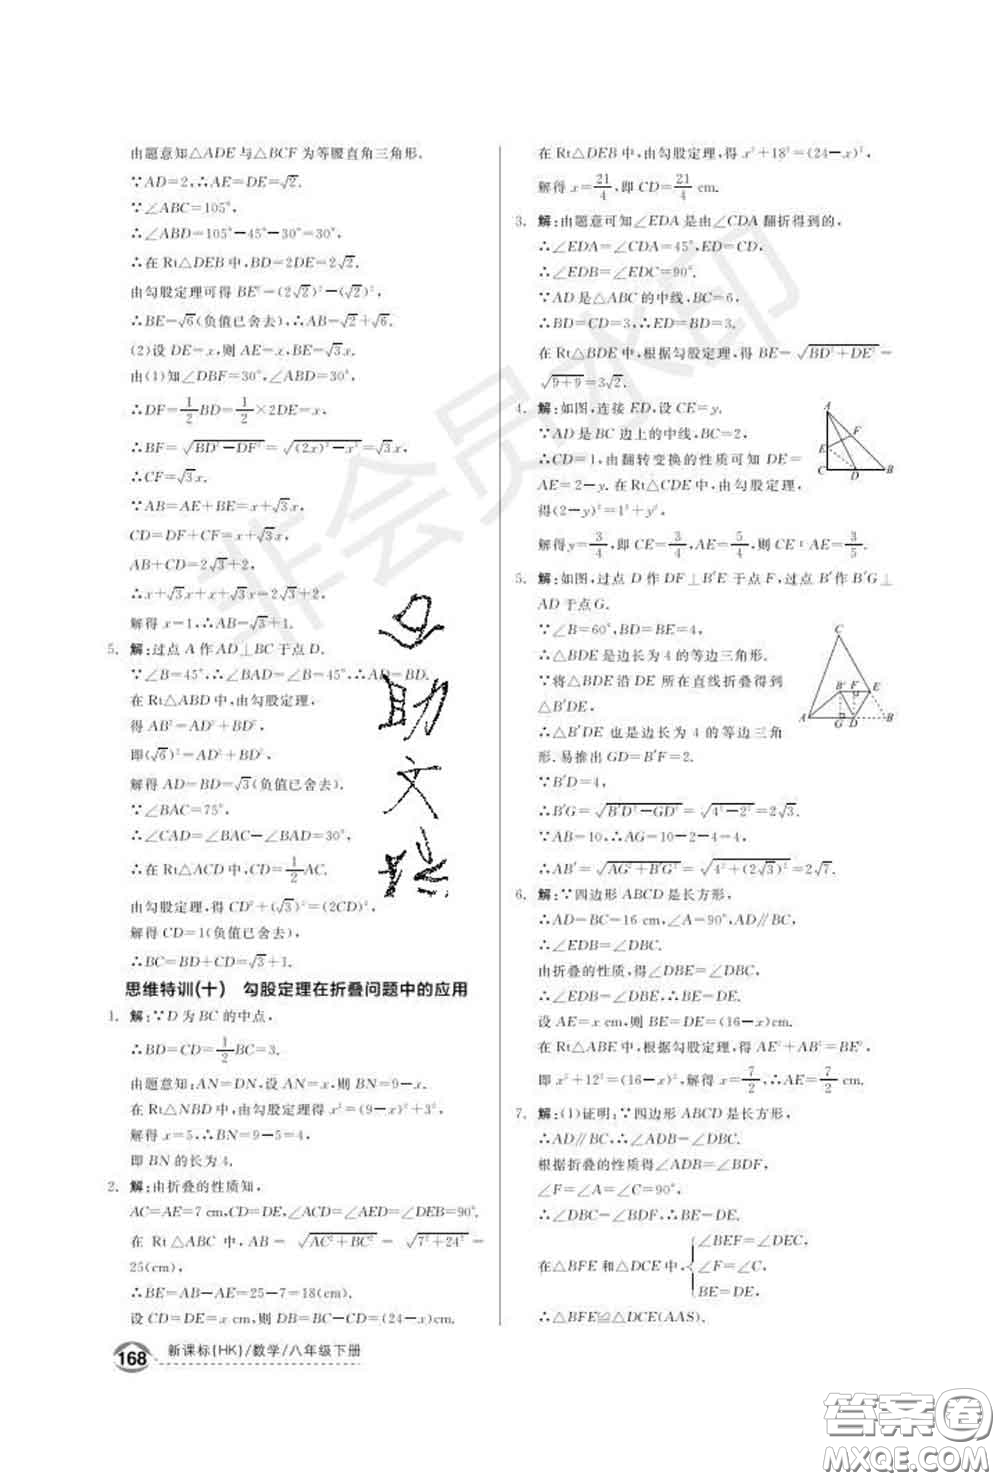 由题意知△ADE与△BCF为等腰直角三角形.
∵AD=2,∴AE=DE=√2.
∵∠ABC=105°,
∴∠ABD=105°-45°-30°=30°.
∴在Rt△DEB中,BD=2DE=2√2.
由勾股定理可得BE²=(2√2)²-(√2)²,
∴BE=√6(负值已舍去),∴AB=√2+√6.
(2)设DE=x,则AE=x,BE=√3x.
由(1)知∠DBF=30°,∠ABD=30°,
∴DF=1/2BD=1/2×2DE=x,
∴BF=√(BD²-DF²)=√((2x)²-x²)=√3x.
∴CF=√3x.
∵AB=AE+BE=x+√3x,
CD=DF+CF=x+√3x,
AB+CD=2√3+2,
∴x+√3x+x+√3x=2√3+2,
解得x=1,∴AB=√3+1.
5. 解:过点A作AD⊥BC于点D.
∵∠B=45°,∴∠BAD=∠B=45°,∴AD=BD.
在Rt△ABD中,由勾股定理,
得AB²=AD²+BD²,
即(√6)²=AD²+BD²,
解得AD=BD=√3(负值已舍去).
∵∠BAC=75°,
∴∠CAD=∠BAC-∠BAD=30°,
∴在Rt△ACD中,CD=1/2AC.
由勾股定理,得CD²+(√3)²=(2CD)²,
解得CD=1(负值已舍去),
∴BC=BD+CD=√3+1.
思维特训(十) 勾股定理在折叠问题中的应用
1. 解:∵D为BC的中点,
∴BD=CD=1/2BC=3.
由题意知:AN=DN,设AN=x,则BN=9-x.
在Rt△NBD中,由勾股定理得x²=(9-x)²+3²,
解得x=5,∴BN=9-5=4,
即BN的长为4.
2. 解:由折叠的性质知,
AC=AE=7 cm,CD=DE,∠ACD=∠AED=∠DEB=90°.
在Rt△ABC中,AB=√(AC²+BC²)=√(7²+24²)=
25(cm),
∴BE=AB-AE=25-7=18(cm).
设CD=DE=x cm,则DB=BC-CD=(24-x)cm.
在Rt△DEB中,由勾股定理,得x²+18²=(24-x)²,
解得x=21/4,即CD=21/4 cm.
3. 解:由题意可知∠EDA是由∠CDA翻折得到的,
∴∠EDA=∠CDA=45°,ED=CD,
∴∠EDB=∠EDC=90°.
∵AD是△ABC的中线,BC=6,
∴BD=CD=3,∴ED=BD=3.
在Rt△BDE中,根据勾股定理,得BE=√(BD²+DE²)=
√(9+9)=3√2.
4. 解:如图,连接ED,设CE=y.
∵AD是BC边上的中线,BC=2,
∴CD=1,由翻转变换的性质可知DE=
AE=2-y.在Rt△CDE中,由勾股定理,
得(2-y)²=1²+y²,
解得y=3/4,即CE=3/4,AE=5/4,则CE∶AE=3/5.
A
F
E
C
D
B
5. 解:如图,过点D作DF⊥B′E于点F,过点B′作B′G⊥
AD于点G.
∵∠B=60°,BD=BE=4,
∴△BDE是边长为4的等边三角形.
∵将△BDE沿DE所在直线折叠得到
△B′DE,
∴△B′DE也是边长为4的等边三角
形.易推出GD=B′F=2.
∵B′D=4,
∴B′G=√(B′D²-GD²)=√(4²-2²)=2√3.
∵AB=10,∴AG=10-2-4=4,
∴AB′=√(AG²+B′G²)=√(4²+(2√3)²)=2√7.
C
B′
F
E
A
G
D
B
6. 解:∵四边形ABCD是长方形,
∴AD=BC=16 cm,∠A=90°,AD∥BC,
∴∠EDB=∠DBC.
由折叠的性质,得∠DBE=∠DBC,
∴∠DBE=∠EDB,∴BE=DE.
设AE=x cm,则BE=DE=(16-x)cm.
在Rt△ABE中,根据勾股定理,得AE²+AB²=BE²,
即x²+12²=(16-x)²,解得x=7/2,∴AE=7/2 cm.
7. 解:(1)证明:∵四边形ABCD是长方形,
∴AD∥BC,∴∠ADB=∠DBC.
根据折叠的性质得∠ADB=∠BDF,
∠F=∠A=∠C=90°,
∴∠DBC=∠BDF,∴BE=DE.
在△BFE和△DCE中,{∠BEF=∠DEC,
∠F=∠C,
BE=DE,
∴△BFE≌△DCE(AAS).
168
新课标(HK)/数学/八年级下册
非会员水印
答案圈
MXQE.COM